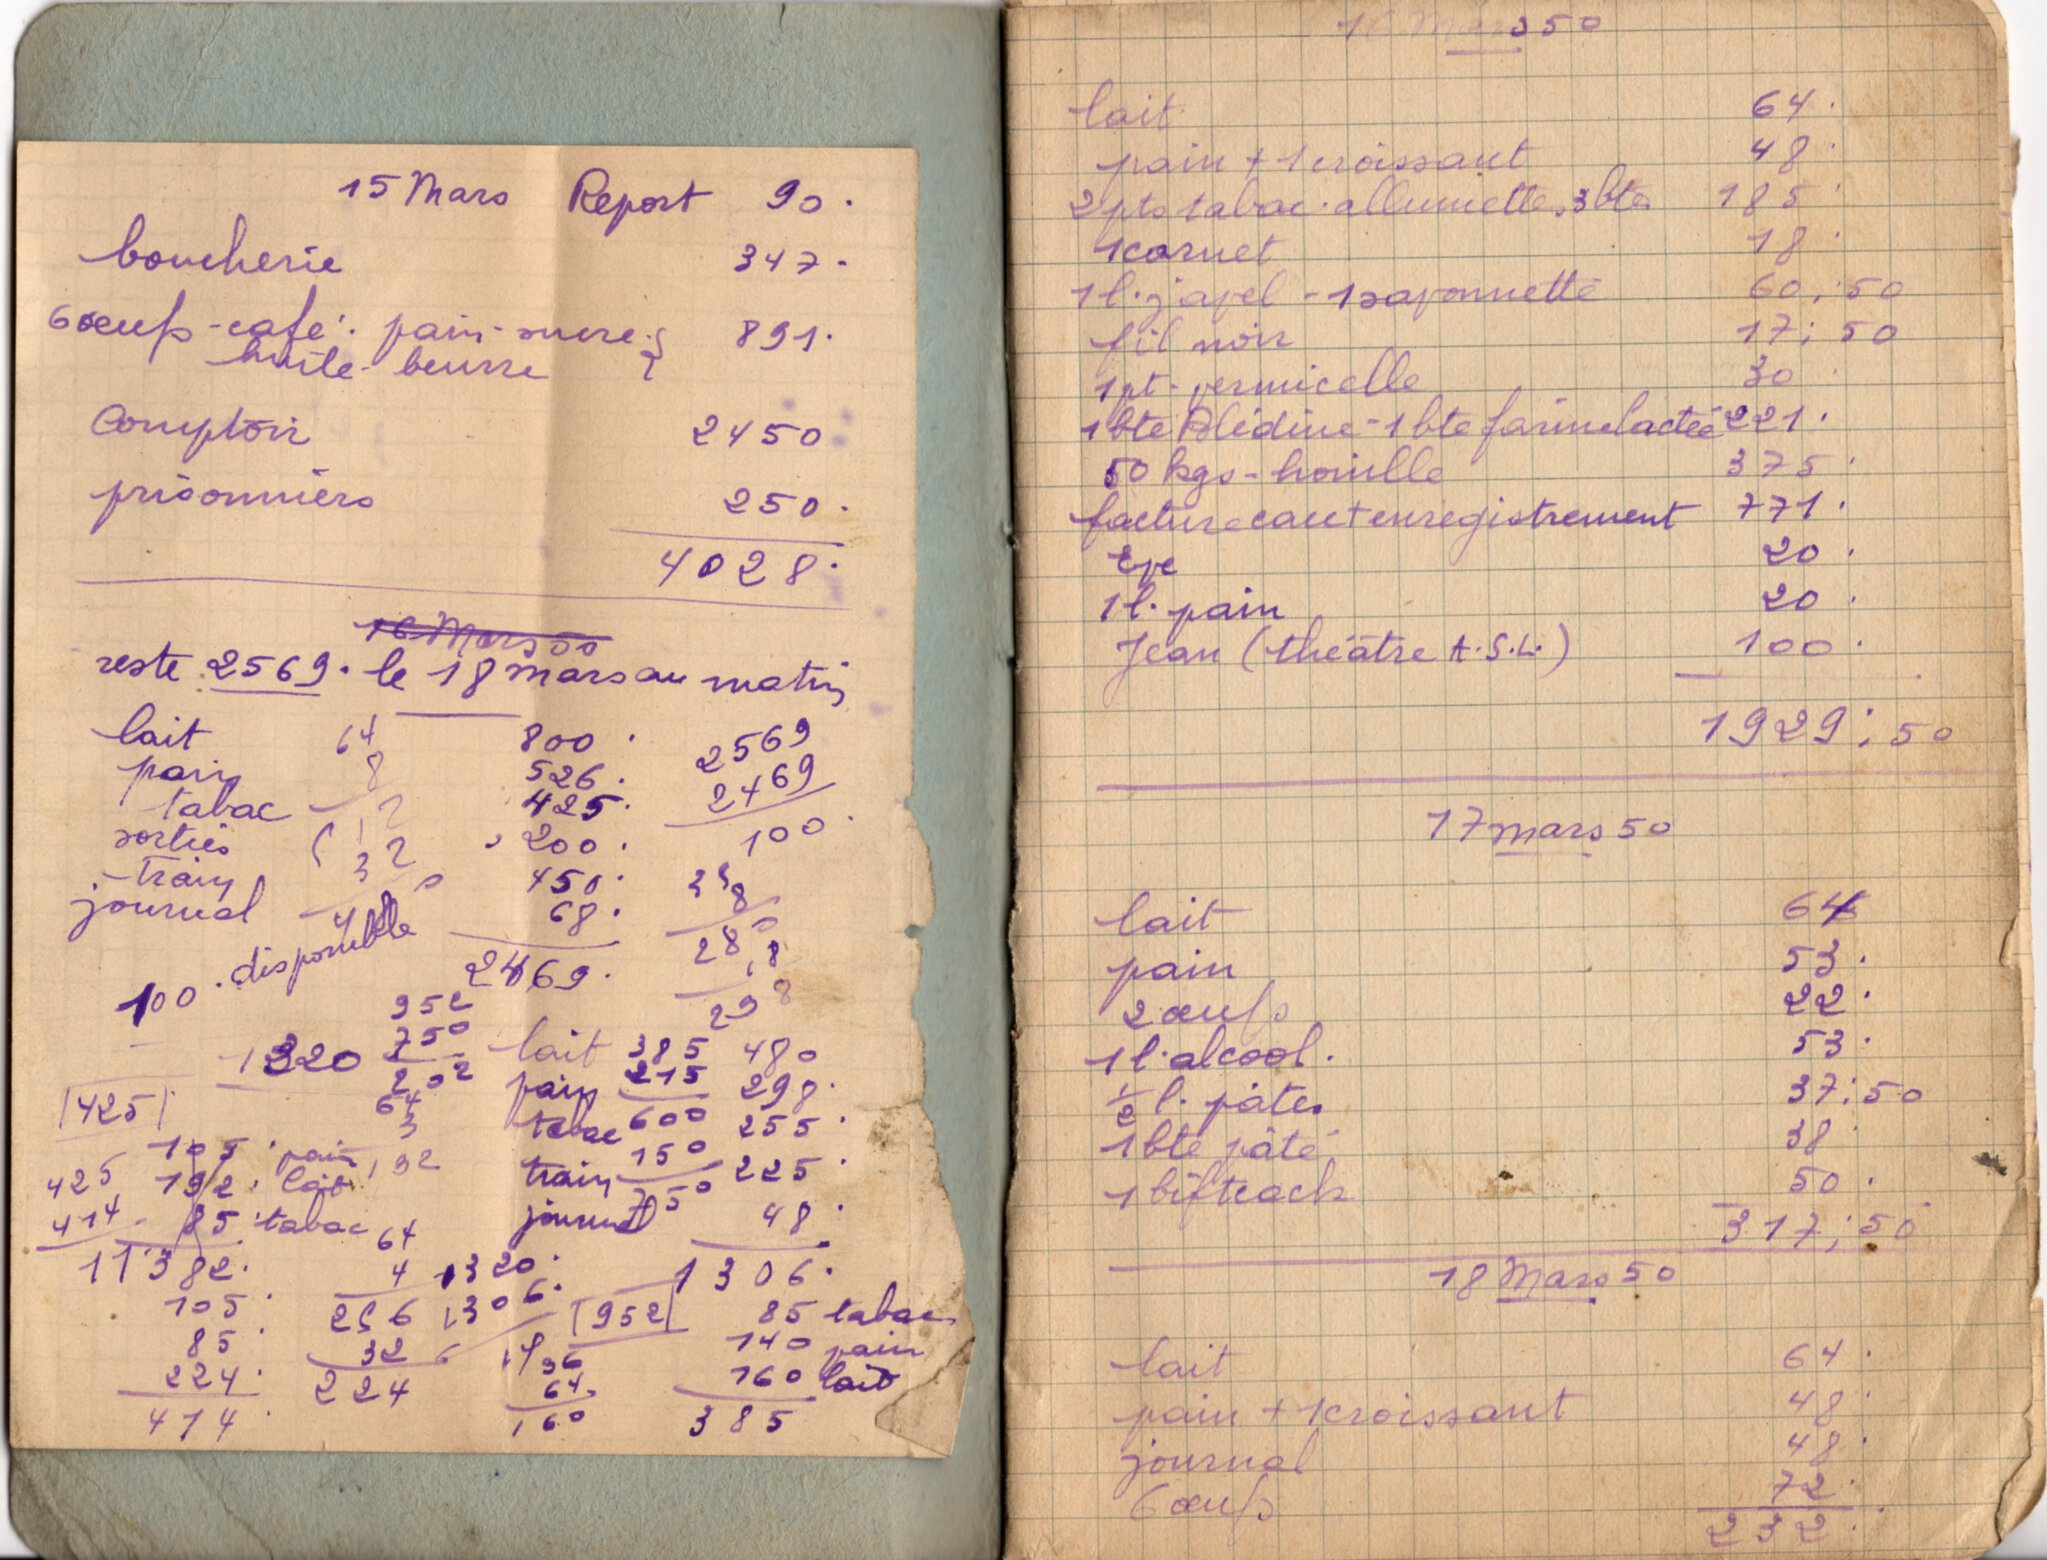 15 Mars Report 90.
boucherie 347.
6 oeufs - café. pain - sucre 891.
huile - beurre
Comptoir 2450
prisonniers 250.
4028.
16 Mars 50
reste 2569. le 18 mars au matin
lait 64 800. 2569
pain 8 526. 2469
tabac 425. 100.
sorties 32 200.
train 450.
journal 48 68. 28
100. disponible 2469. 298
952
1320 750 lait 385 480
202 pain 215 298.
425 64 tabac 600 255.
3
105. pain 192 150
425 192. lait train 225.
414 85 tabac journal 750 48.
11 382. 64
4 1320. 1306.
105. 256 1306. 952 85 tabac
85. 32 14 96 140 pain
224. 224 64. 160 lait
414. 160 385
16 Mars 50
lait 64.
pain + 1 croissant 48.
2 pts tabac. allumettes 3 btes 185.
1 carnet 18.
1 l. javel - 1 savonnette 60,50
fil noir 17;50
1 pt. vermicelle 30.
1 bte Blédine - 1 bte farine lactée 221.
50 kgs - houille 375.
facture eau + enregistrement 771.
Eve 20.
1 l. pain 20.
Jean (théâtre A.S.L.) 100.
1929;50
17 mars 50
lait 64
pain 53.
2 œufs 22.
1 l. alcool. 53.
1/2 l. pâtes 37;50
1 bte pâté 38.
1 bifteack 50.
317;50
18 Mars 50
lait 64.
pain + 1 croissant 48.
journal 48.
6 œufs 72.
232.